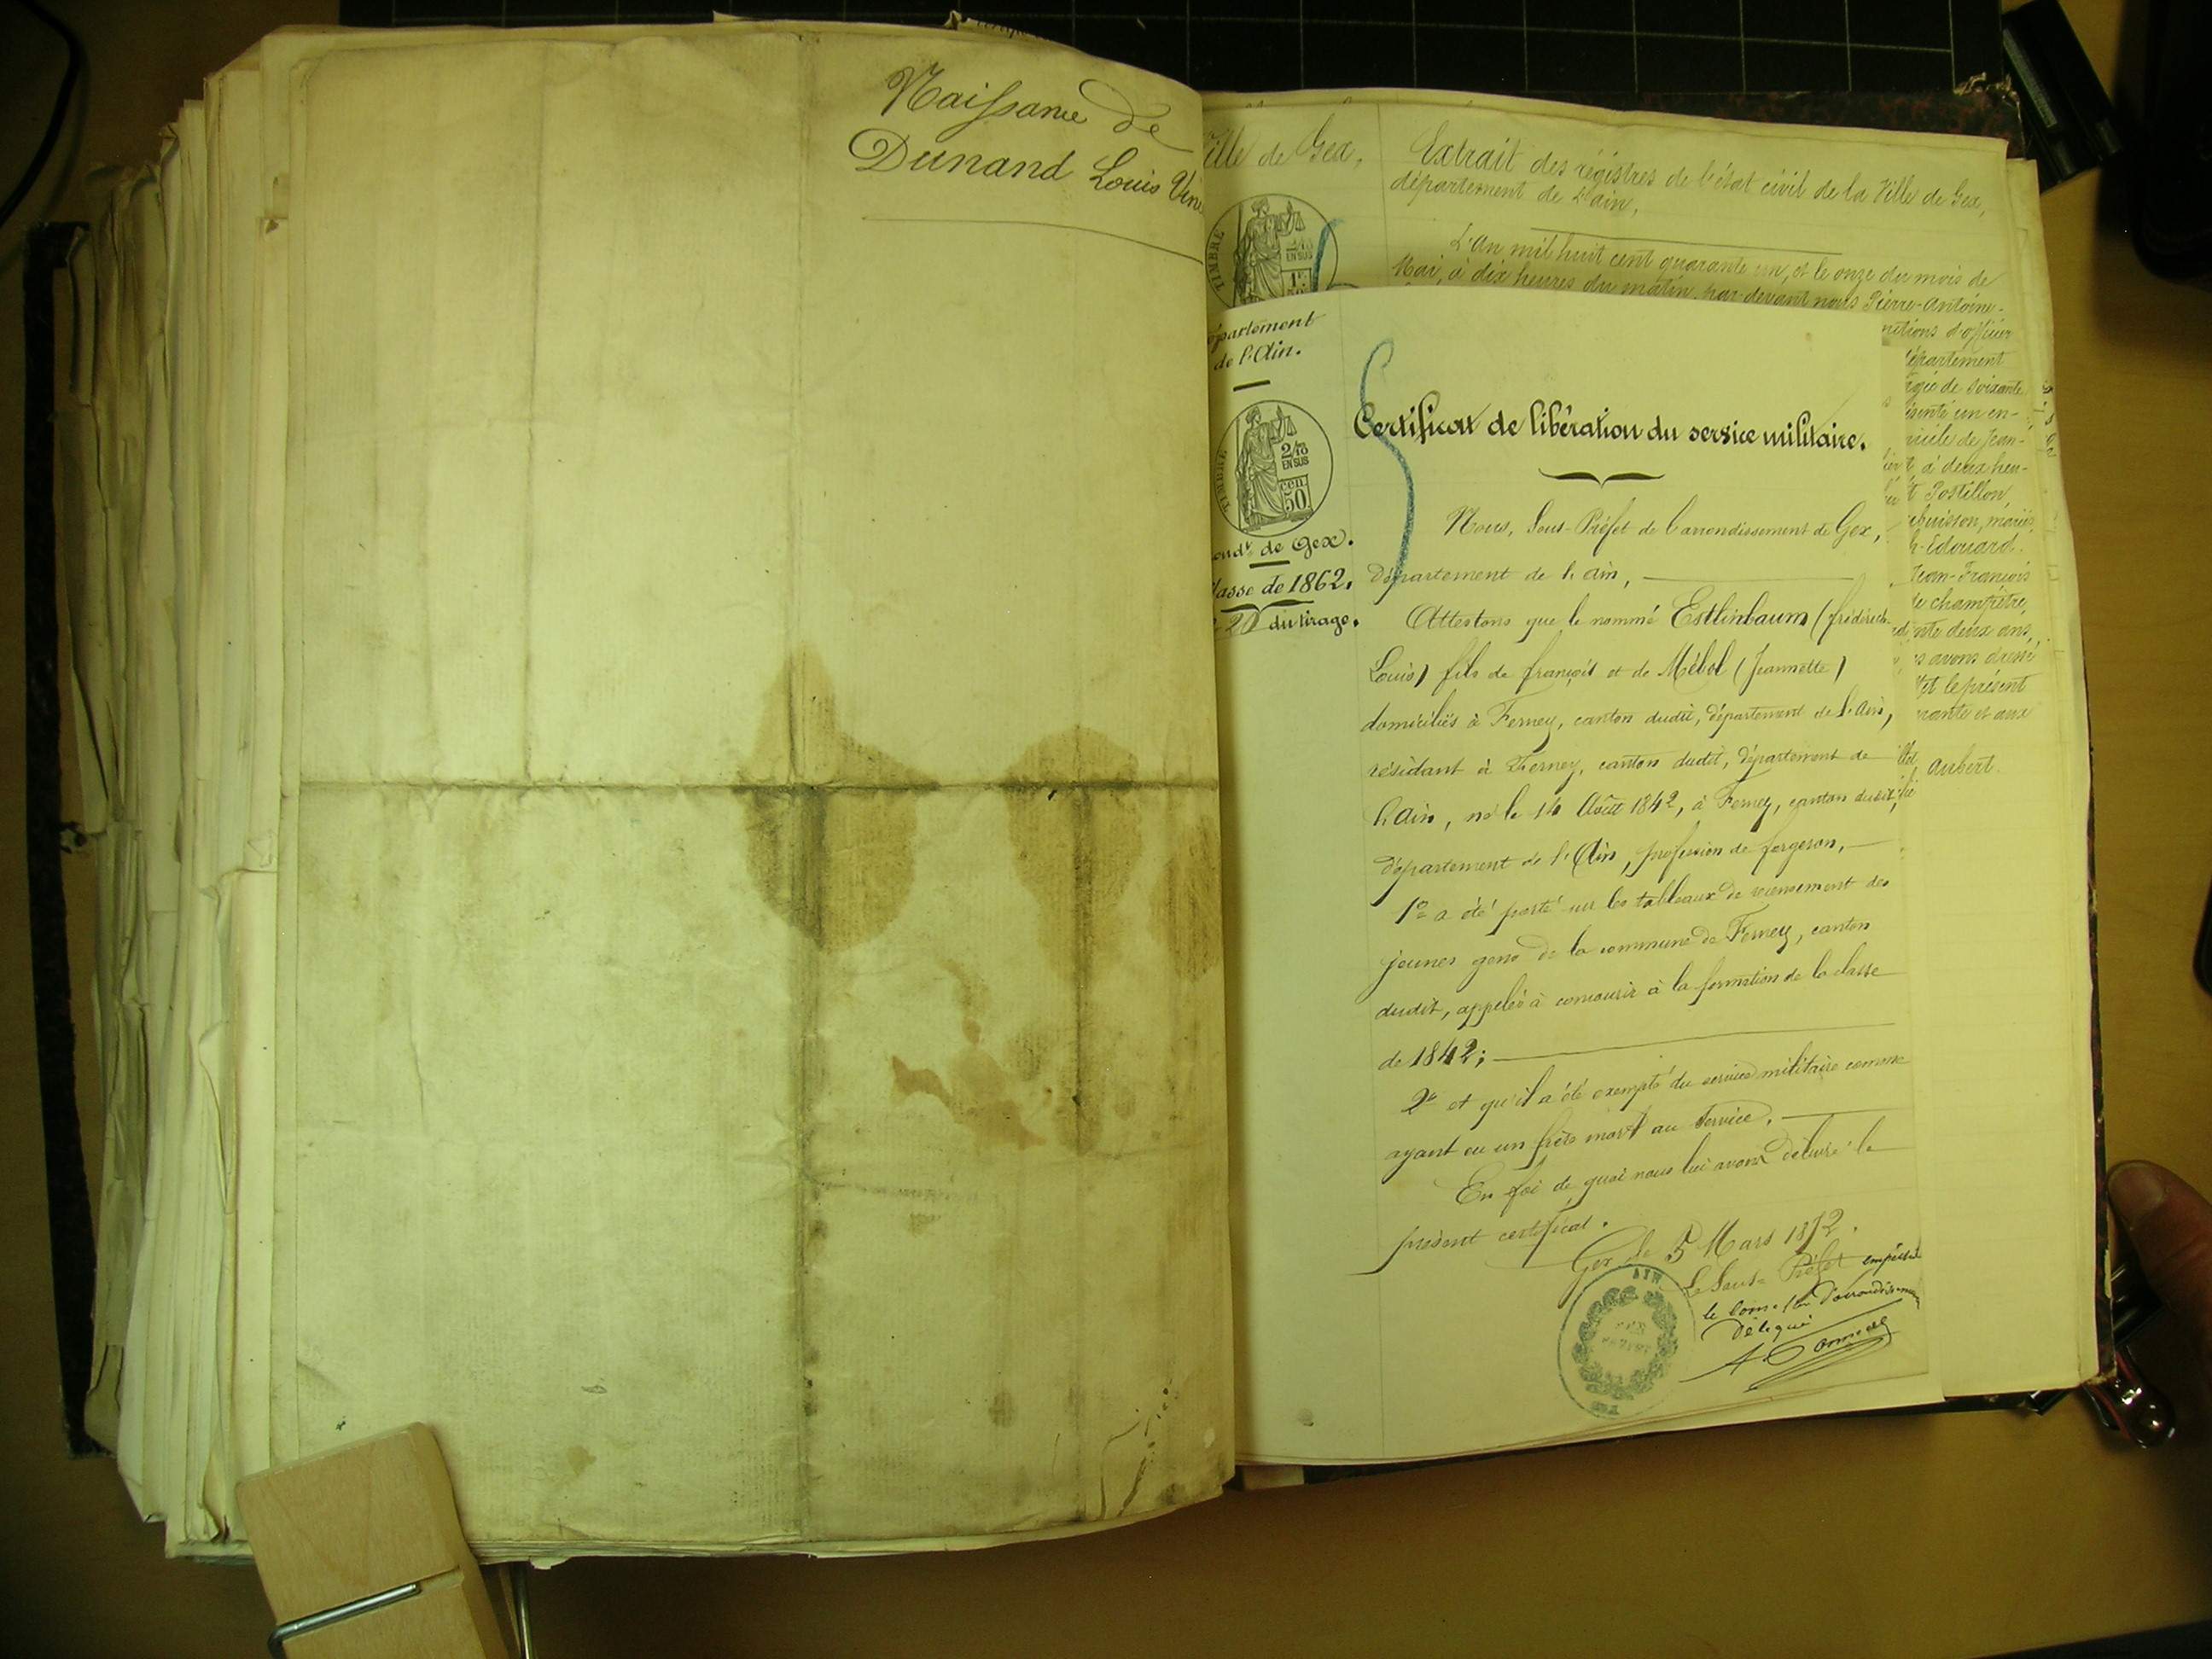 Naissance de
Dunand Louis
Ville de Gex,
Extrait des régistres de l'état civil de la Ville de Gex,
département de L'ain,
L'An mil huit cent quarante un, et le onze du mois de
Mai, à dix heures du matin, par devant nous Pierre-Antoine-
d'officier
département
de soixante
un en-
de Jean-
à deux heu-
Postillon,
mariés,
Edouard.
Jean-François
champêtre,
deux ans,
avons dressé
et le présent
Aubert.
TIMBRE
2/10
EN SUS
département
de l'Ain.
TIMBRE
2/10
EN SUS
cen
50
de Gex.
de 1862.
du tirage.
Certificat de libération du service militaire.
Nous, Sous-Préfet de l'arrondissement de Gex,
Département de l'ain,
Attestons que le nommé Estlinbaum (fréderich-
Louis) fils de françois et de Mébol (Jeannette)
domiciliés à Ferney, canton dudit, département de l'Ain,
résidant à Ferney, canton dudit, département de
l'Ain, né le 14 Août 1842, à Ferney, canton dudit,
département de l'Ain, profession de forgeron,
1º a été porté sur les tableaux de recensement des
jeunes gens de la commune de Ferney, canton
dudit, appelés à concourir à la formation de la classe
de 1842;
2º et qu'il a été exempté du service militaire comme
ayant eu un frère mort au service.
En foi de quoi nous lui avons délivré le
présent certificat.
Gex, le 5 Mars 1872.
Le Sous-Préfet empêché
le Cons. d'arrondissement
Délégué
AIN